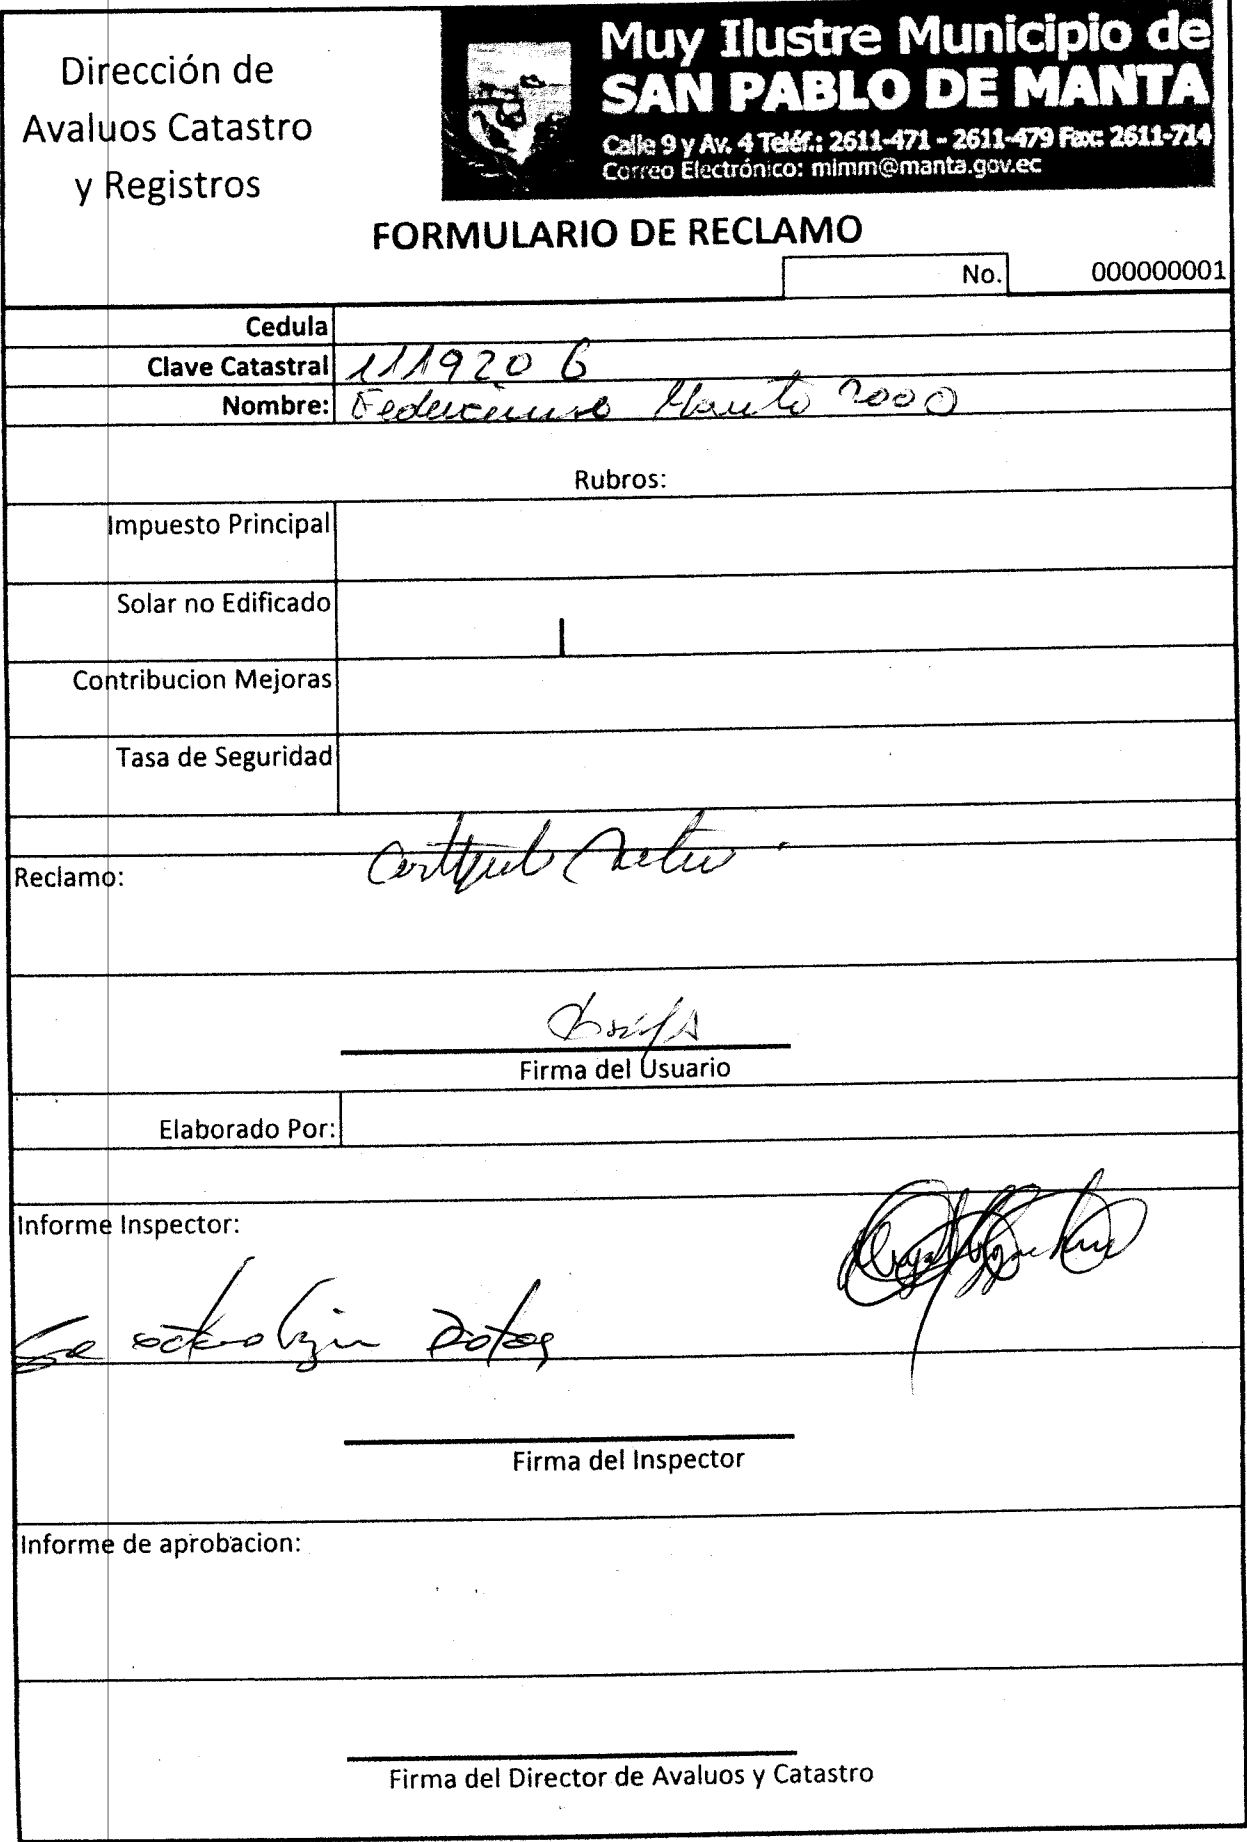 Dirección de
Avaluos Catastro
y Registros
Muy Ilustre Municipio de
SAN PABLO DE MANTA
Calle 9 y Av. 4 Teléf.: 2611-471 - 2611-479 Fax: 2611-714
Correo Electrónico: mimm@manta.gov.ec
FORMULARIO DE RECLAMO
No. 000000001
Cedula
Clave Catastral 111920 6
Nombre: 2000
Rubros:
Impuesto Principal
Solar no Edificado
Contribucion Mejoras
Tasa de Seguridad
Reclamo:
Firma del Usuario
Elaborado Por:
Informe Inspector:
Se
Firma del Inspector
Informe de aprobacion:
Firma del Director de Avaluos y Catastro